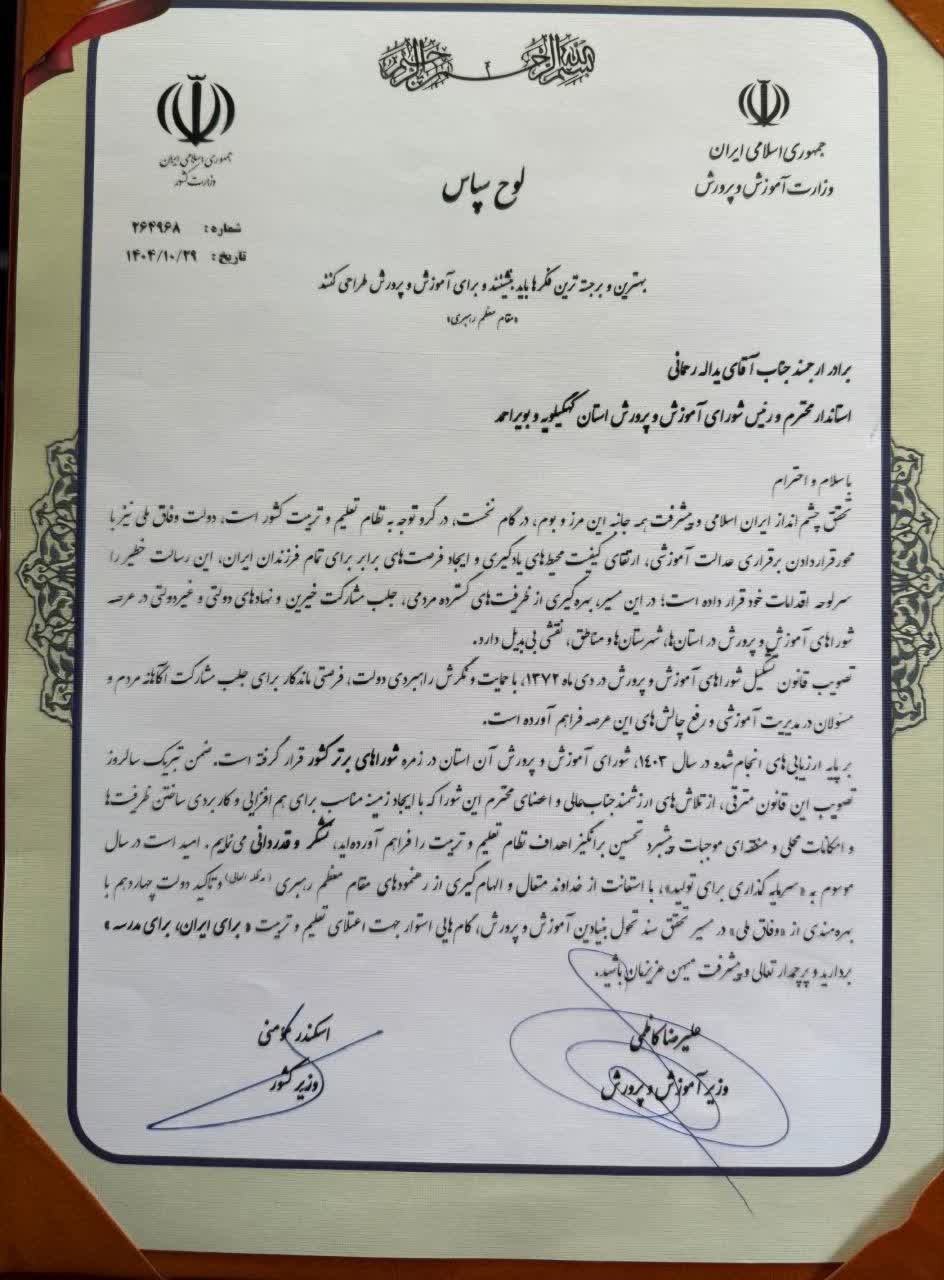 بسم الله الرحمن الرحیم
جمهوری اسلامی ایران
وزارت آموزش و پرورش
جمهوری اسلامی ایران
وزارت کشور
لوح سپاس
شماره : ۲۶۴۹۶۸
تاریخ : ۱۴۰۴/۱۰/۲۹
بهترین و برجسته ترین فکرها باید بنشینند و برای آموزش و پرورش طراحی کنند
«مقام معظم رهبری»
برادر ارجمند جناب آقای یداله رحمانی
استاندار محترم و رئیس شورای آموزش و پرورش استان کهگیلویه و بویراحمد
با سلام و احترام
تحقق چشم انداز ایران اسلامی و پیشرفت همه جانبه این مرز و بوم، در گام نخست، در گرو توجه به نظام تعلیم و تربیت کشور است، دولت وفاق ملی نیز با
محور قرار دادن برقراری عدالت آموزشی، ارتقای کیفیت محیط‌های یادگیری و ایجاد فرصت‌های برابر برای تمام فرزندان ایران، این رسالت خطیر را
سرلوحه اقدامات خود قرار داده است؛ در این مسیر، بهره‌گیری از ظرفیت‌های گسترده مردمی، جلب مشارکت خیرین و نهادهای دولتی و غیردولتی در عرصه
شوراهای آموزش و پرورش در استان‌ها، شهرستان‌ها و مناطق، نقشی بی‌بدیل دارد.
تصویب قانون تشکیل شوراهای آموزش و پرورش در دی ماه ۱۳۷۲، با حمایت و نگرش راهبردی دولت، فرصتی ماندگار برای جلب مشارکت آگاهانه مردم و
مسئولان در مدیریت آموزشی و رفع چالش‌های این عرصه فراهم آورده است.
بر پایه ارزیابی‌های انجام‌شده در سال ۱۴۰۳، شورای آموزش و پرورش آن استان در زمره شوراهای برتر کشور قرار گرفته است. ضمن تبریک سالروز
تصویب این قانون مترقی، از تلاش‌های ارزشمند جناب‌عالی و اعضای محترم این شورا که با ایجاد زمینه مناسب برای هم‌افزایی و کاربردی ساختن ظرفیت‌ها
و امکانات محلی و منطقه‌ای موجبات پیشبرد تحسین برانگیز اهداف نظام تعلیم و تربیت را فراهم آورده‌اید، تشکر و قدردانی می‌نمایم. امید است در سال
موسوم به «سرمایه گذاری برای تولید»، با استعانت از خداوند متعال و الهام‌گیری از رهنمودهای مقام معظم رهبری (مدظله العالی) و تاکید دولت چهاردهم با
بهره‌مندی از «وفاق ملی» در مسیر تحقق سند تحول بنیادین آموزش و پرورش، گام‌هایی استوار جهت اعتلای تعلیم و تربیت «برای ایران، برای مدرسه»
بردارید و پرچمدار تعالی و پیشرفت میهن عزیزمان باشید.
علیرضا کاظمی
وزیر آموزش و پرورش
اسکندر مؤمنی
وزیر کشور